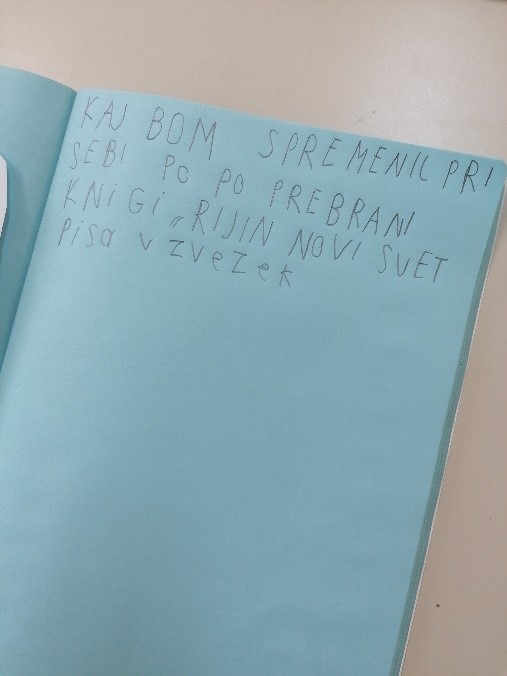 KAJ BOM SPREMENIL PRI
SEBI PO PO PREBRANI
KNiGi „RIJIN NOVI SVET
Pisa v zvezek